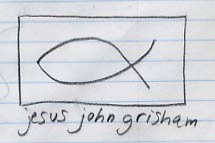 jesus john grisham